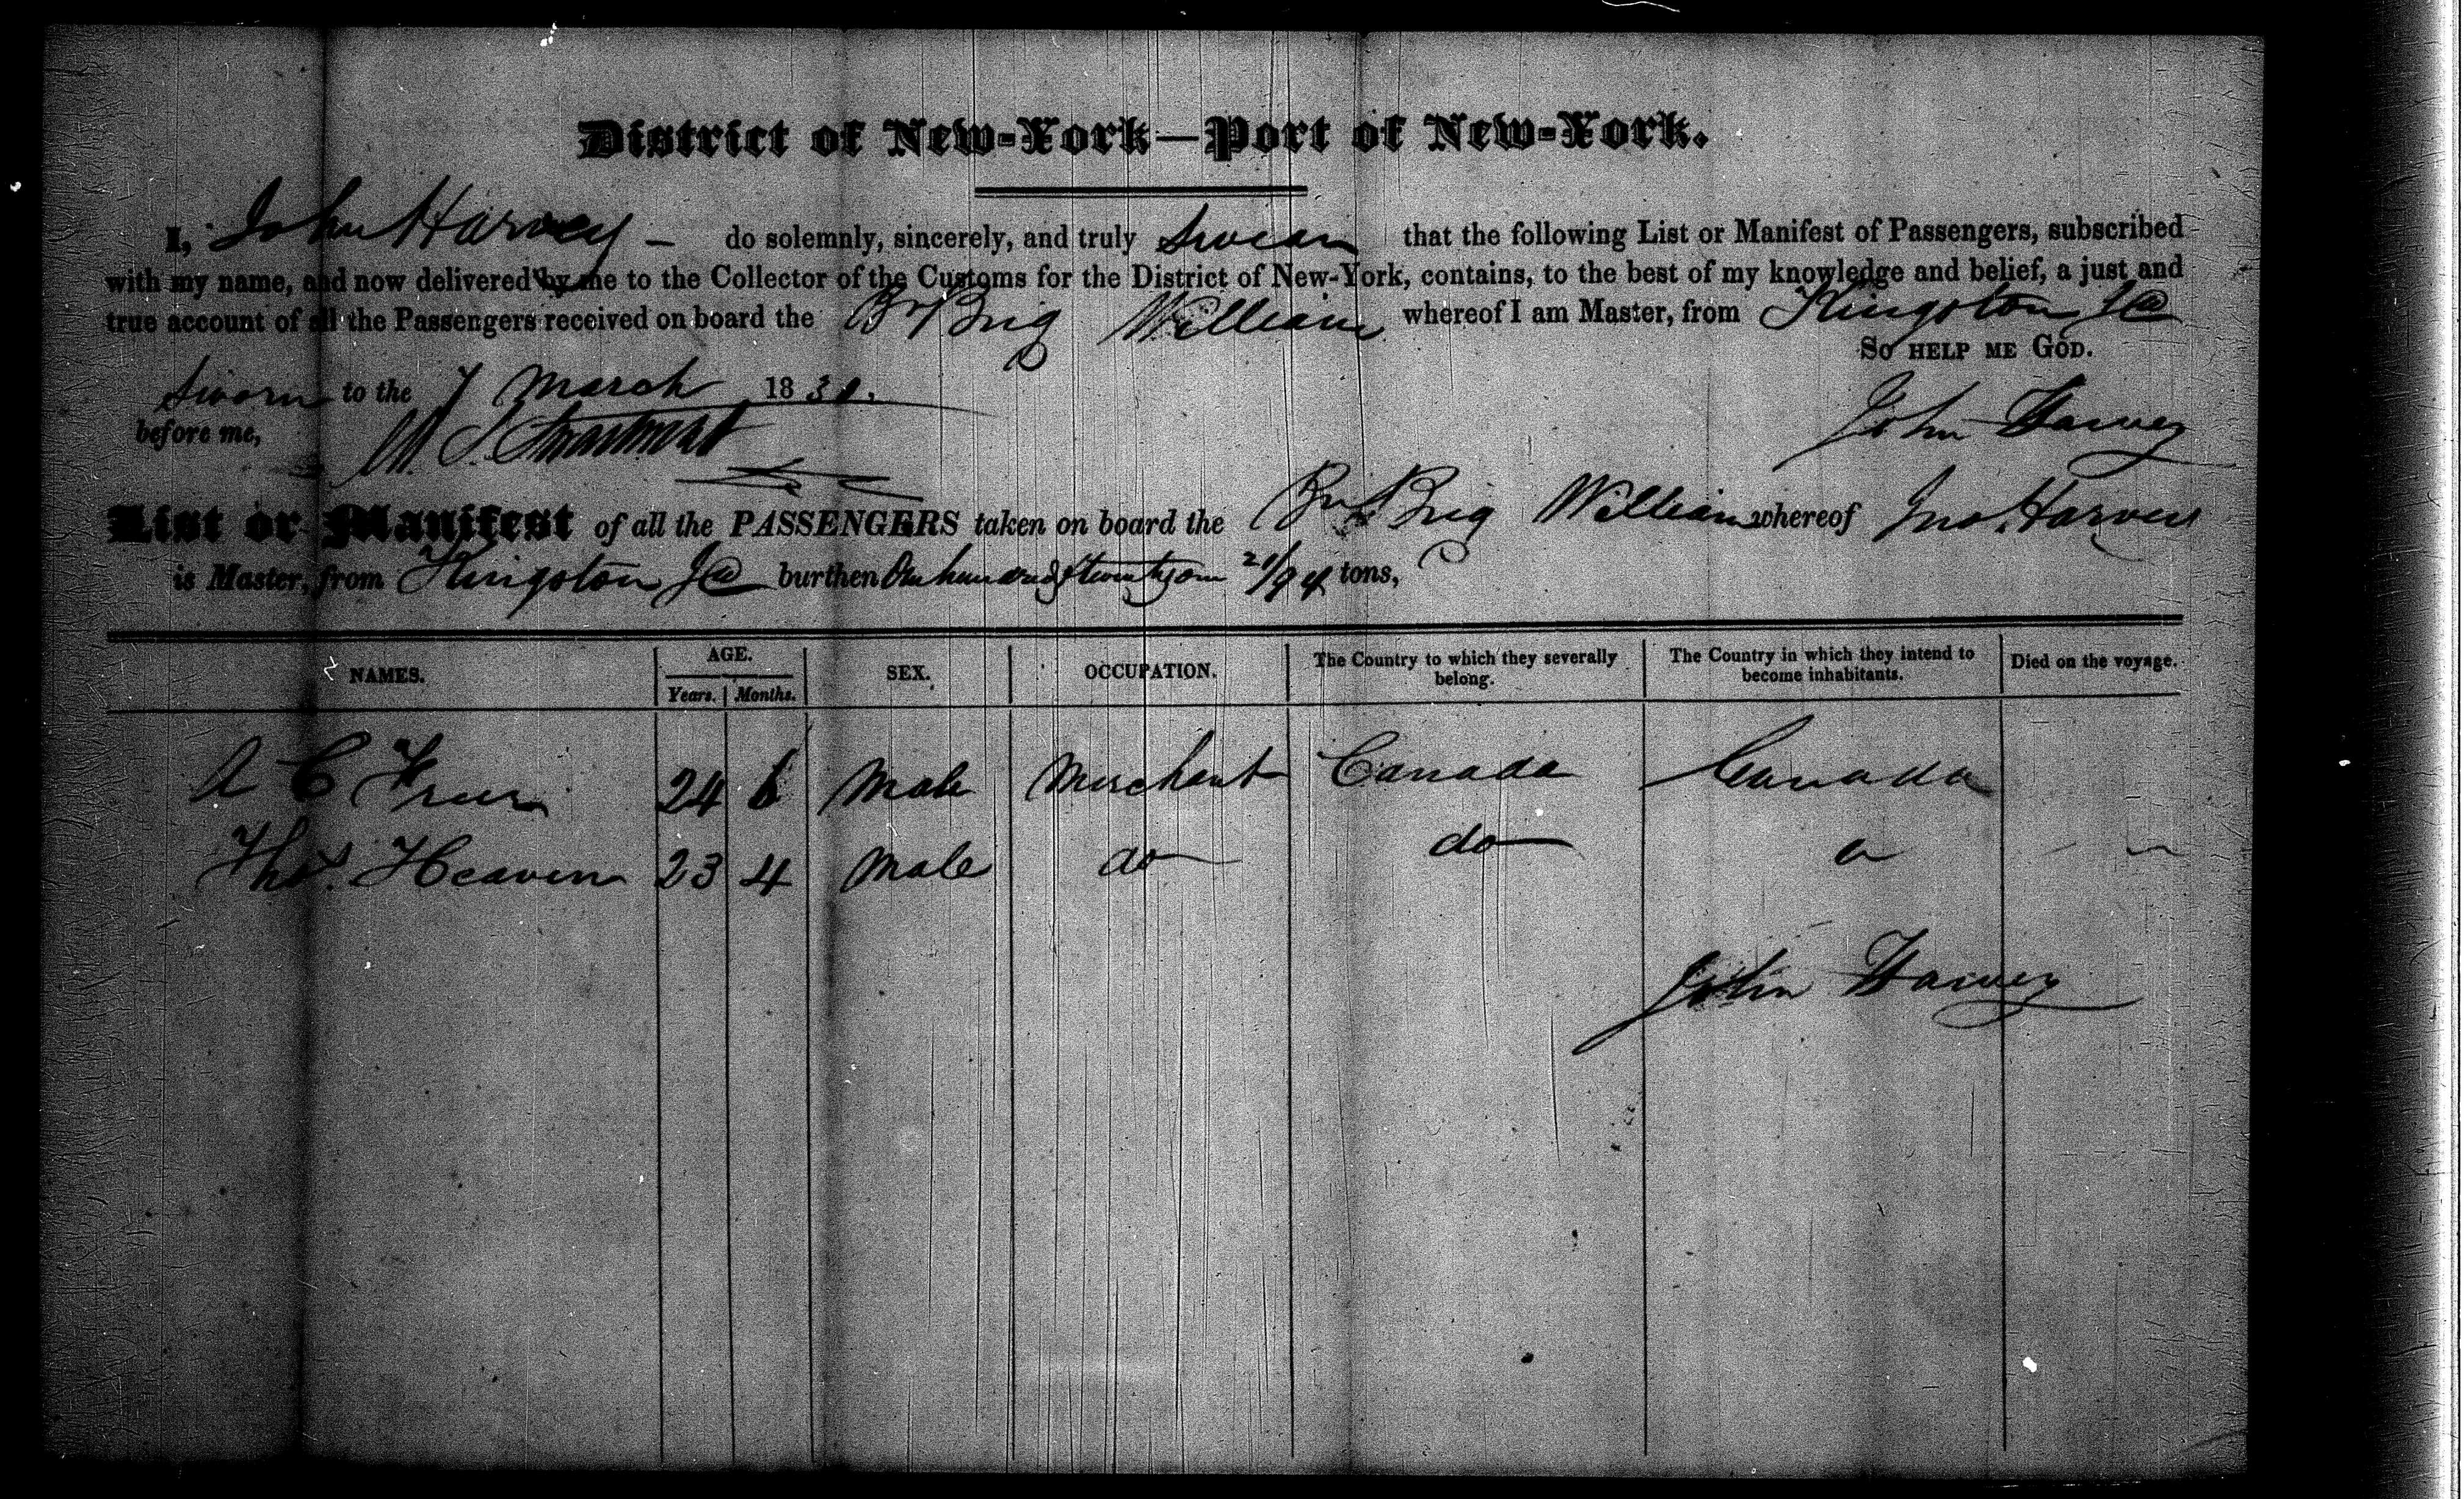 District of New-York—Port of New-York.
I, John Harvey — do solemnly, sincerely, and truly Swear that the following List or Manifest of Passengers, subscribed
with my name, and now delivered by me to the Collector of the Customs for the District of New-York, contains, to the best of my knowledge and belief, a just and
true account of all the Passengers received on board the Br Brig William whereof I am Master, from Kingston Ja
So help me God.
Sworn to the 7 March 1831.
John Harvey
before me,
List or Manifest of all the PASSENGERS taken on board the Br Brig William whereof Jno. Harvey
is Master, from Kingston Ja burthen One hundred & twenty one 21/94 tons,
NAMES. AGE. Years. Months. SEX. OCCUPATION. The Country to which they severally belong. The Country in which they intend to become inhabitants. Died on the voyage.
A C Freer 24 6 Male Merchant Canada Canada
Thos. Heaven 23 4 Male do do
John Harvey